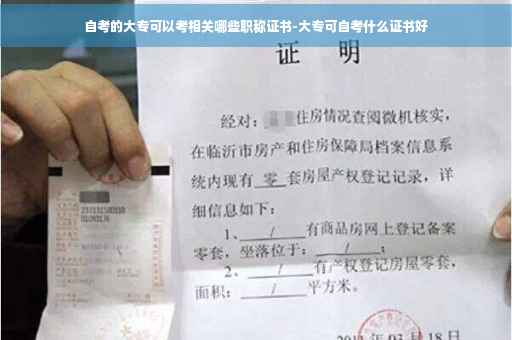 自考的大专可以考相关哪些职称证书-大专可自考什么证书好
证 明
经对： 住房情况查阅微机核实，
在临沂市房产和住房保障局档案信息系
统内现有 零 套房屋产权登记记录，详
细信息如下：
1、 / 有商品房网上登记备案
零套，坐落位于： / ；
2、 / 有产权登记房屋零套，
面积： / 平方米。